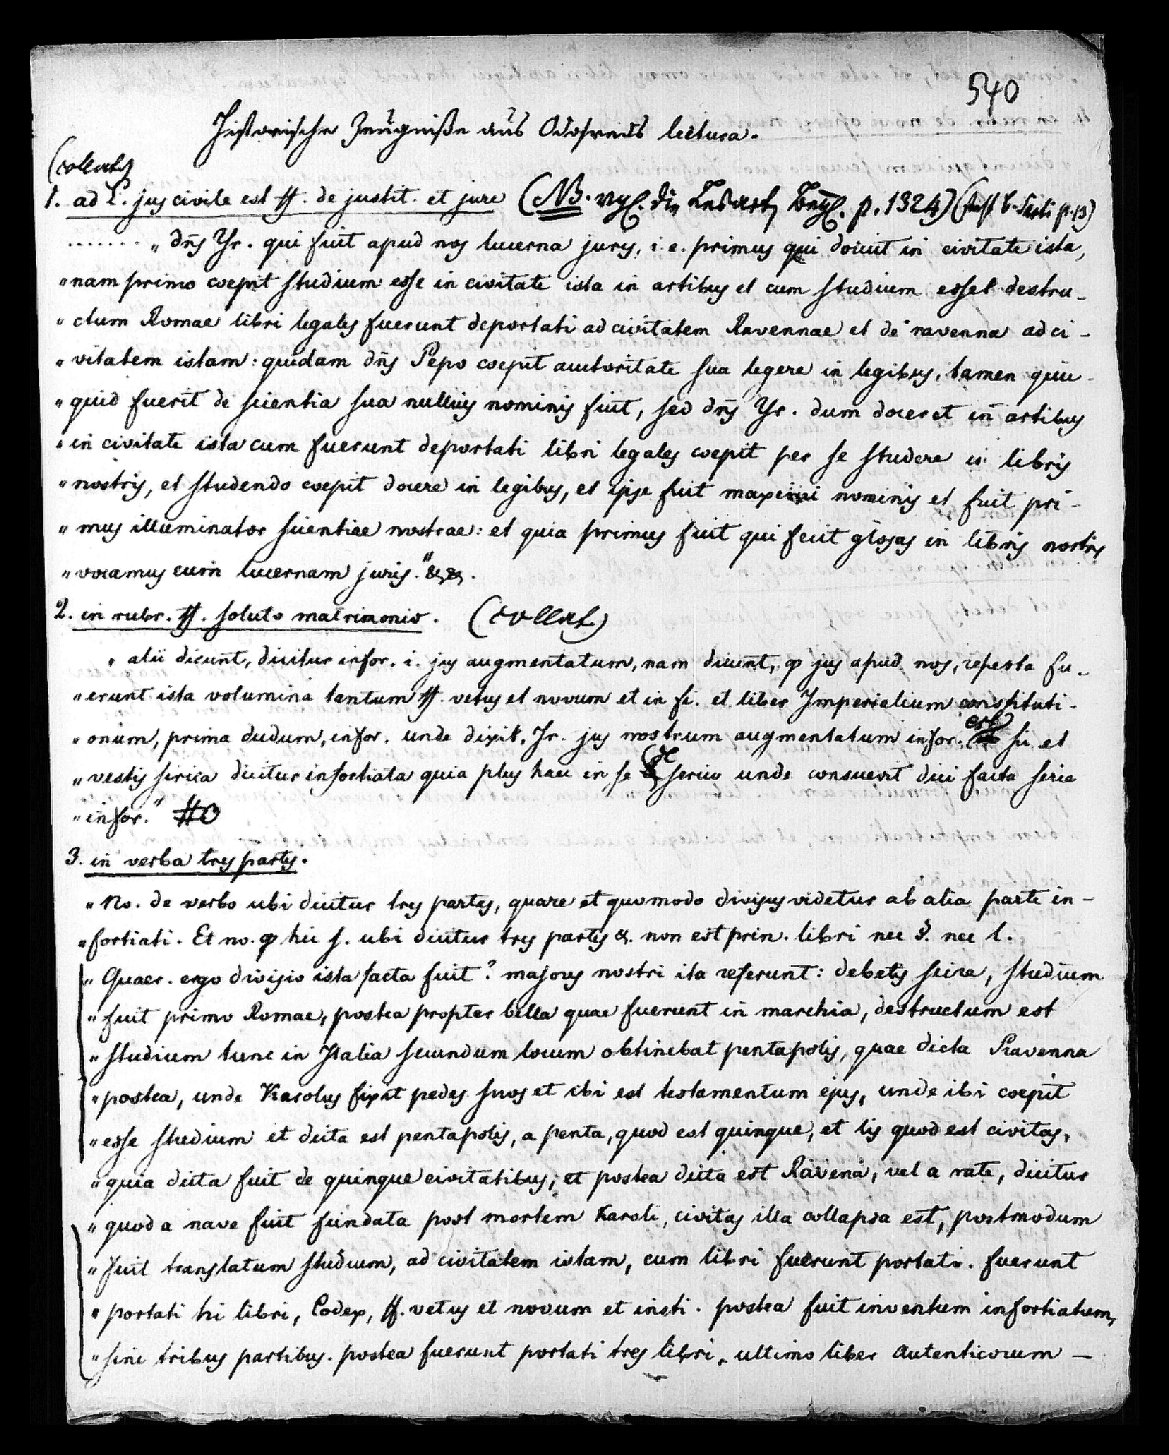 540
Historische Zeugniße aus Odofreds lectura.
(collat)
1. ad L. jus civile est ff. de justit. et jure (NB. vgl. die p. 1324) (p. 13)
....... „ dñs Yr. qui fuit apud nos lucerna juris, i. e. primus qui docuit in civitate ista,
„ nam primo coepit studium esse in civitate ista in artibus et cum studium esset destru-
„ ctum Romae libri legales fuerunt deportati ad civitatem Ravennae et de ravenna ad ci-
„ vitatem istam: quidam dñs Pepo coepit auctoritate sua legere in legibus, tamen quic-
„ quid fuerit de scientia sua nullius nominis fuit, sed dñs Yr. dum doceret in artibus
„ in civitate ista cum fuerunt deportati libri legales coepit per se studere in libris
„ nostris, et studendo coepit docere in legibus, et ipse fuit maximi nominis et fuit pri-
„ mus illuminator scientiae nostrae: et quia primus fuit qui fecit glosas in libris nostris
„ vocamus eum lucernam juris."
2. in rubr. ff. soluto matrimonio. (collat)
„ alii dicunt, dicitur infor. i. jus augmentatum, nam dicunt, jus apud nos, reperta fu-
„ erunt ista volumina tantum ff. vetus et novum et in fi. et liber Imperialium constituti-
„ onum, prima dudum, infor. unde dixit, Yr. jus nostrum augmentatum infor. est si. et
„ vestis sirica dicitur infortiata quia plus hau in se de serico unde consuevit dici facta seria
„ infor."
3. in verba tres partes.
„ No. de verbo ubi dicitur tres partes, quare et quomodo divisus videtur ab alia parte in-
„ fortiati. Et no. hic s. ubi dicitur tres partes &. non est prin. libri nec §. nec l.
„ Quaer. ergo divisio ista facta fuit? majores nostri ita referunt: debetis scire, studium
„ fuit primo Romae, postea propter bella quae fuerunt in marchia, destructum est
„ studium tunc in Italia secundum locum obtinebat pentapolis, quae dicta Ravenna
„ postea, unde Karolus fixit pedes suos et ibi est testamentum ejus, unde ibi coepit
„ esse studium et dicta est pentapolis, a penta, quod est quinque, et lis quod est civitas,
„ quia dicta fuit de quinque civitatibus, et postea dicta est Ravena, vel a rate, dicitur
„ quod a nave fuit fundata post mortem Karoli, civitas illa collapsa est, postmodum
„ fuit translatum studium, ad civitatem istam, cum libri fuerunt portati. fuerunt
„ portati hi libri, Codex, ff. vetus et novum et insti. postea fuit inventum infortiatum,
„ sine tribus partibus. postea fuerunt portati tres libri, ultimo liber autenticorum —